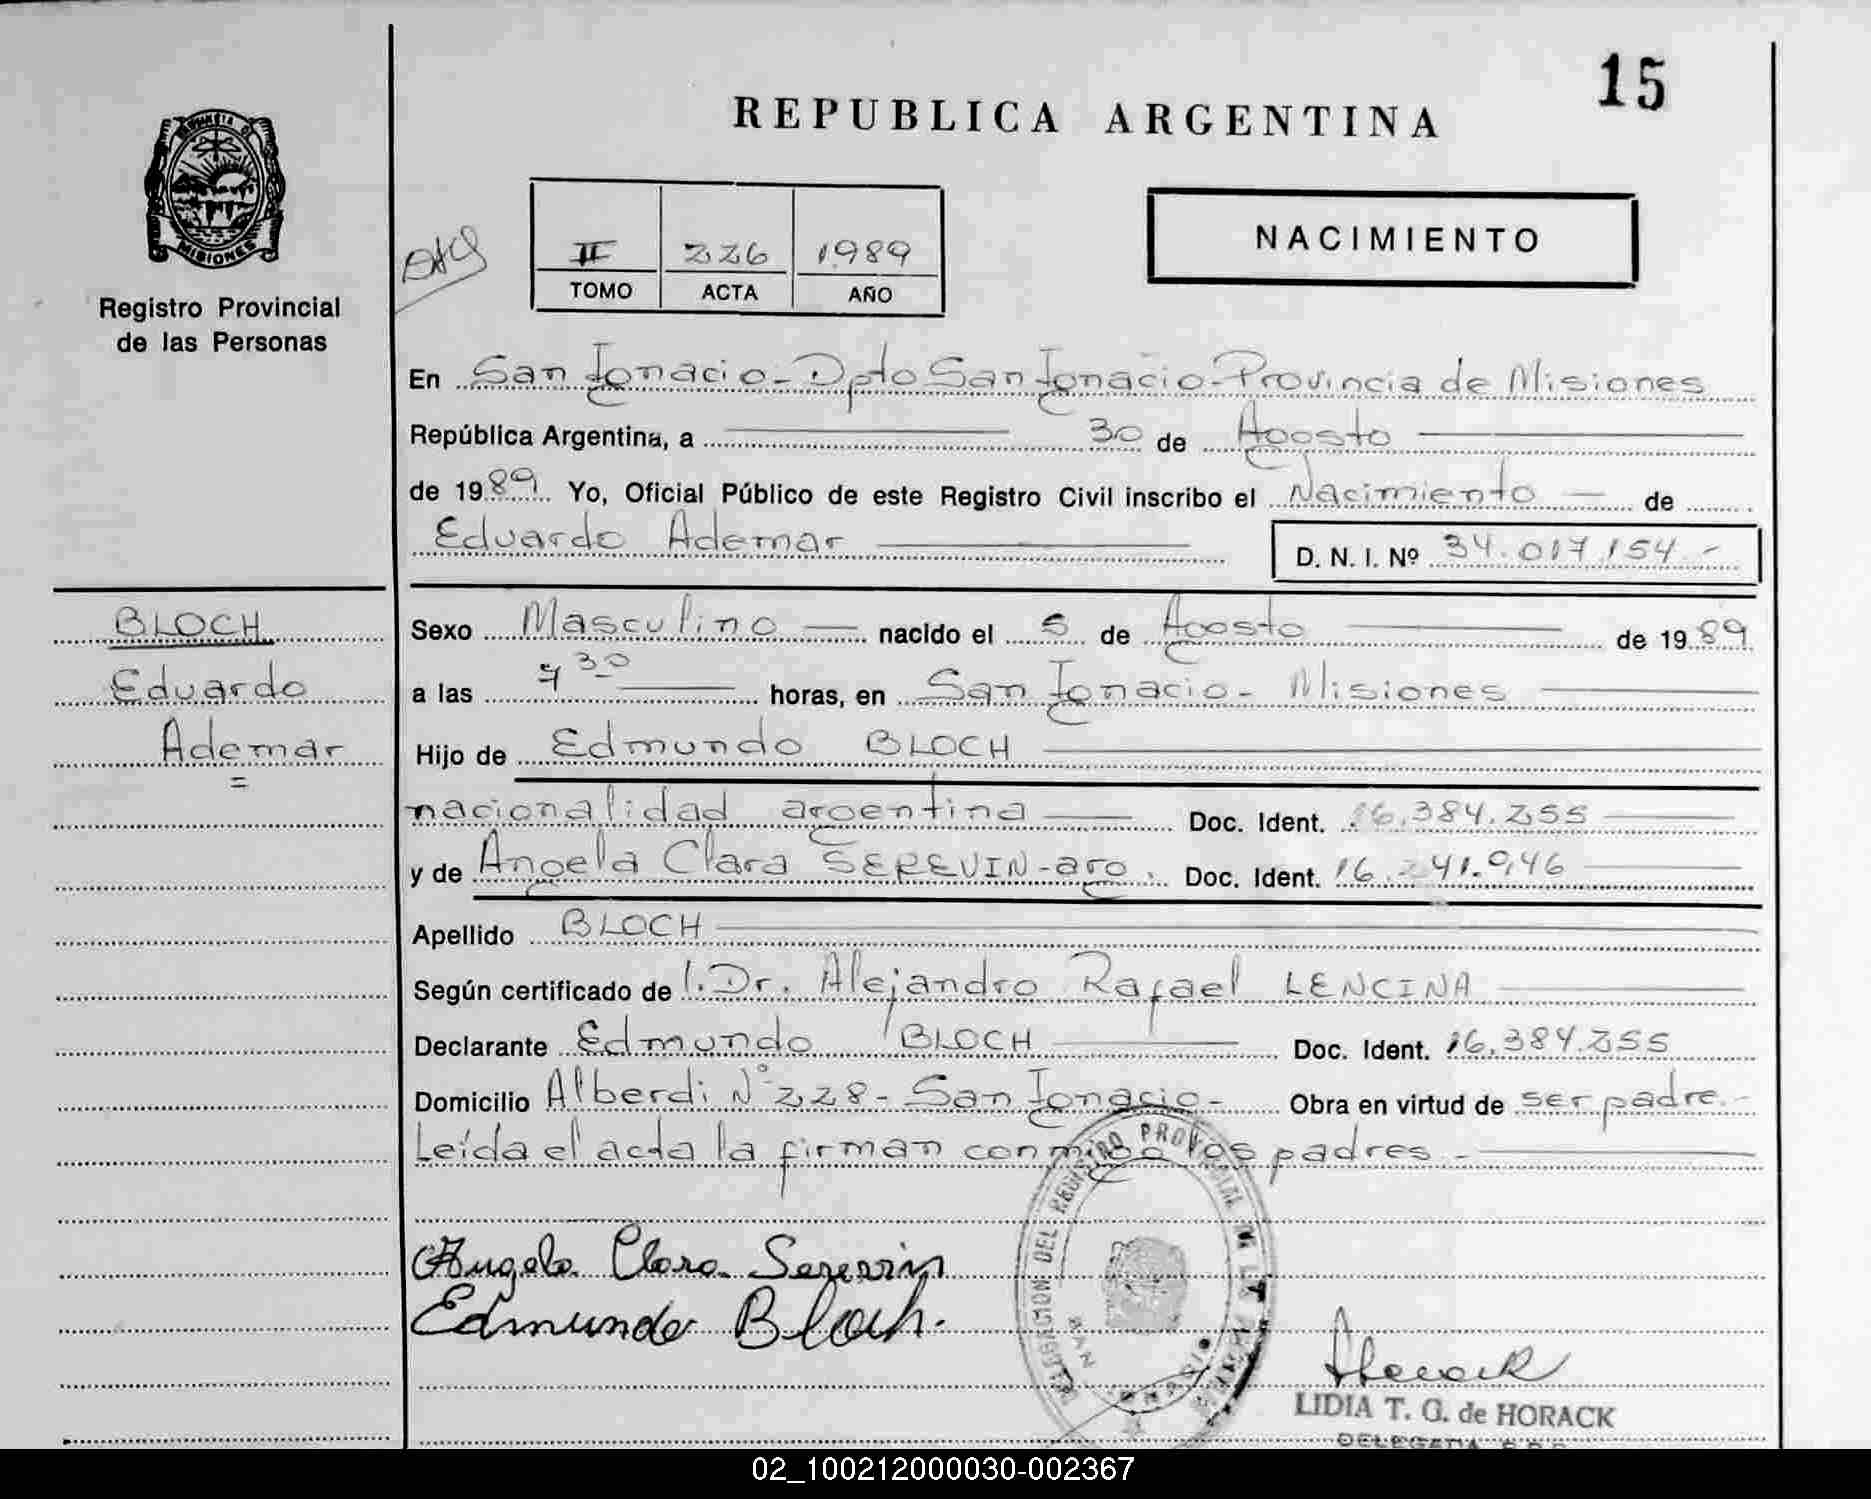 15
REPUBLICA ARGENTINA
PROVINCIA DE
MISIONES
Registro Provincial
de las Personas
II 226 1989
TOMO ACTA AÑO
NACIMIENTO
En San Ignacio - Dpto San Ignacio - Provincia de Misiones
República Argentina, a 30 de Agosto
de 1989 Yo, Oficial Público de este Registro Civil inscribo el Nacimiento de
Eduardo Ademar D. N. I. Nº 34.017.154.-
BLOCH
Eduardo
Ademar
Sexo Masculino nacido el 5 de Agosto de 1989
a las 7 30 horas, en San Ignacio - Misiones
Hijo de Edmundo BLOCH
nacionalidad argentina Doc. Ident. 16.384.255
y de Angela Clara SEREVIN - arg. Doc. Ident. 16. 41.946
Apellido BLOCH
Según certificado de l. Dr. Alejandro Rafael LENCINA
Declarante Edmundo BLOCH Doc. Ident. 16.384.255
Domicilio Alberdi N° 228 - San Ignacio - Obra en virtud de ser padre.-
Leída el acta la firman conmigo los padres.-
Angela Clara Serevin
Edmundo Bloch.
DEL REGISTRO PROVINCIAL DE LAS
SAN IGNACIO
Horack
LIDIA T. G. de HORACK
DELEGADA
02_100212000030-002367